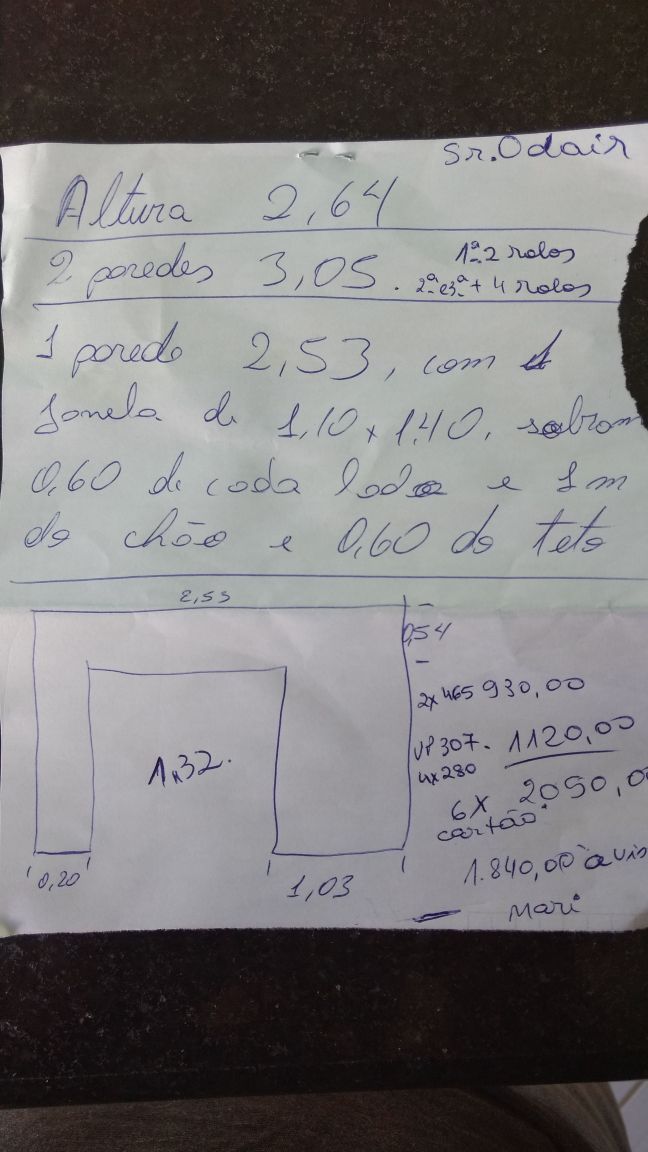 Sr. Odair
Altura 2,64
2 paredes 3,05. 1ª-2 rolos
2ª e 3ª + 4 rolos
1 parede 2,53, com 1
Janela de 1,10 x 1,40, sobram
0,60 de cada lado e 1m
do chão e 0,60 do teto
2,53
0,54
2x465 930,00
1,32.
VP307. 1120,00
4x280
6x 2050,00
cartão.
0,20
1,03
1.840,00 à vis
Mari